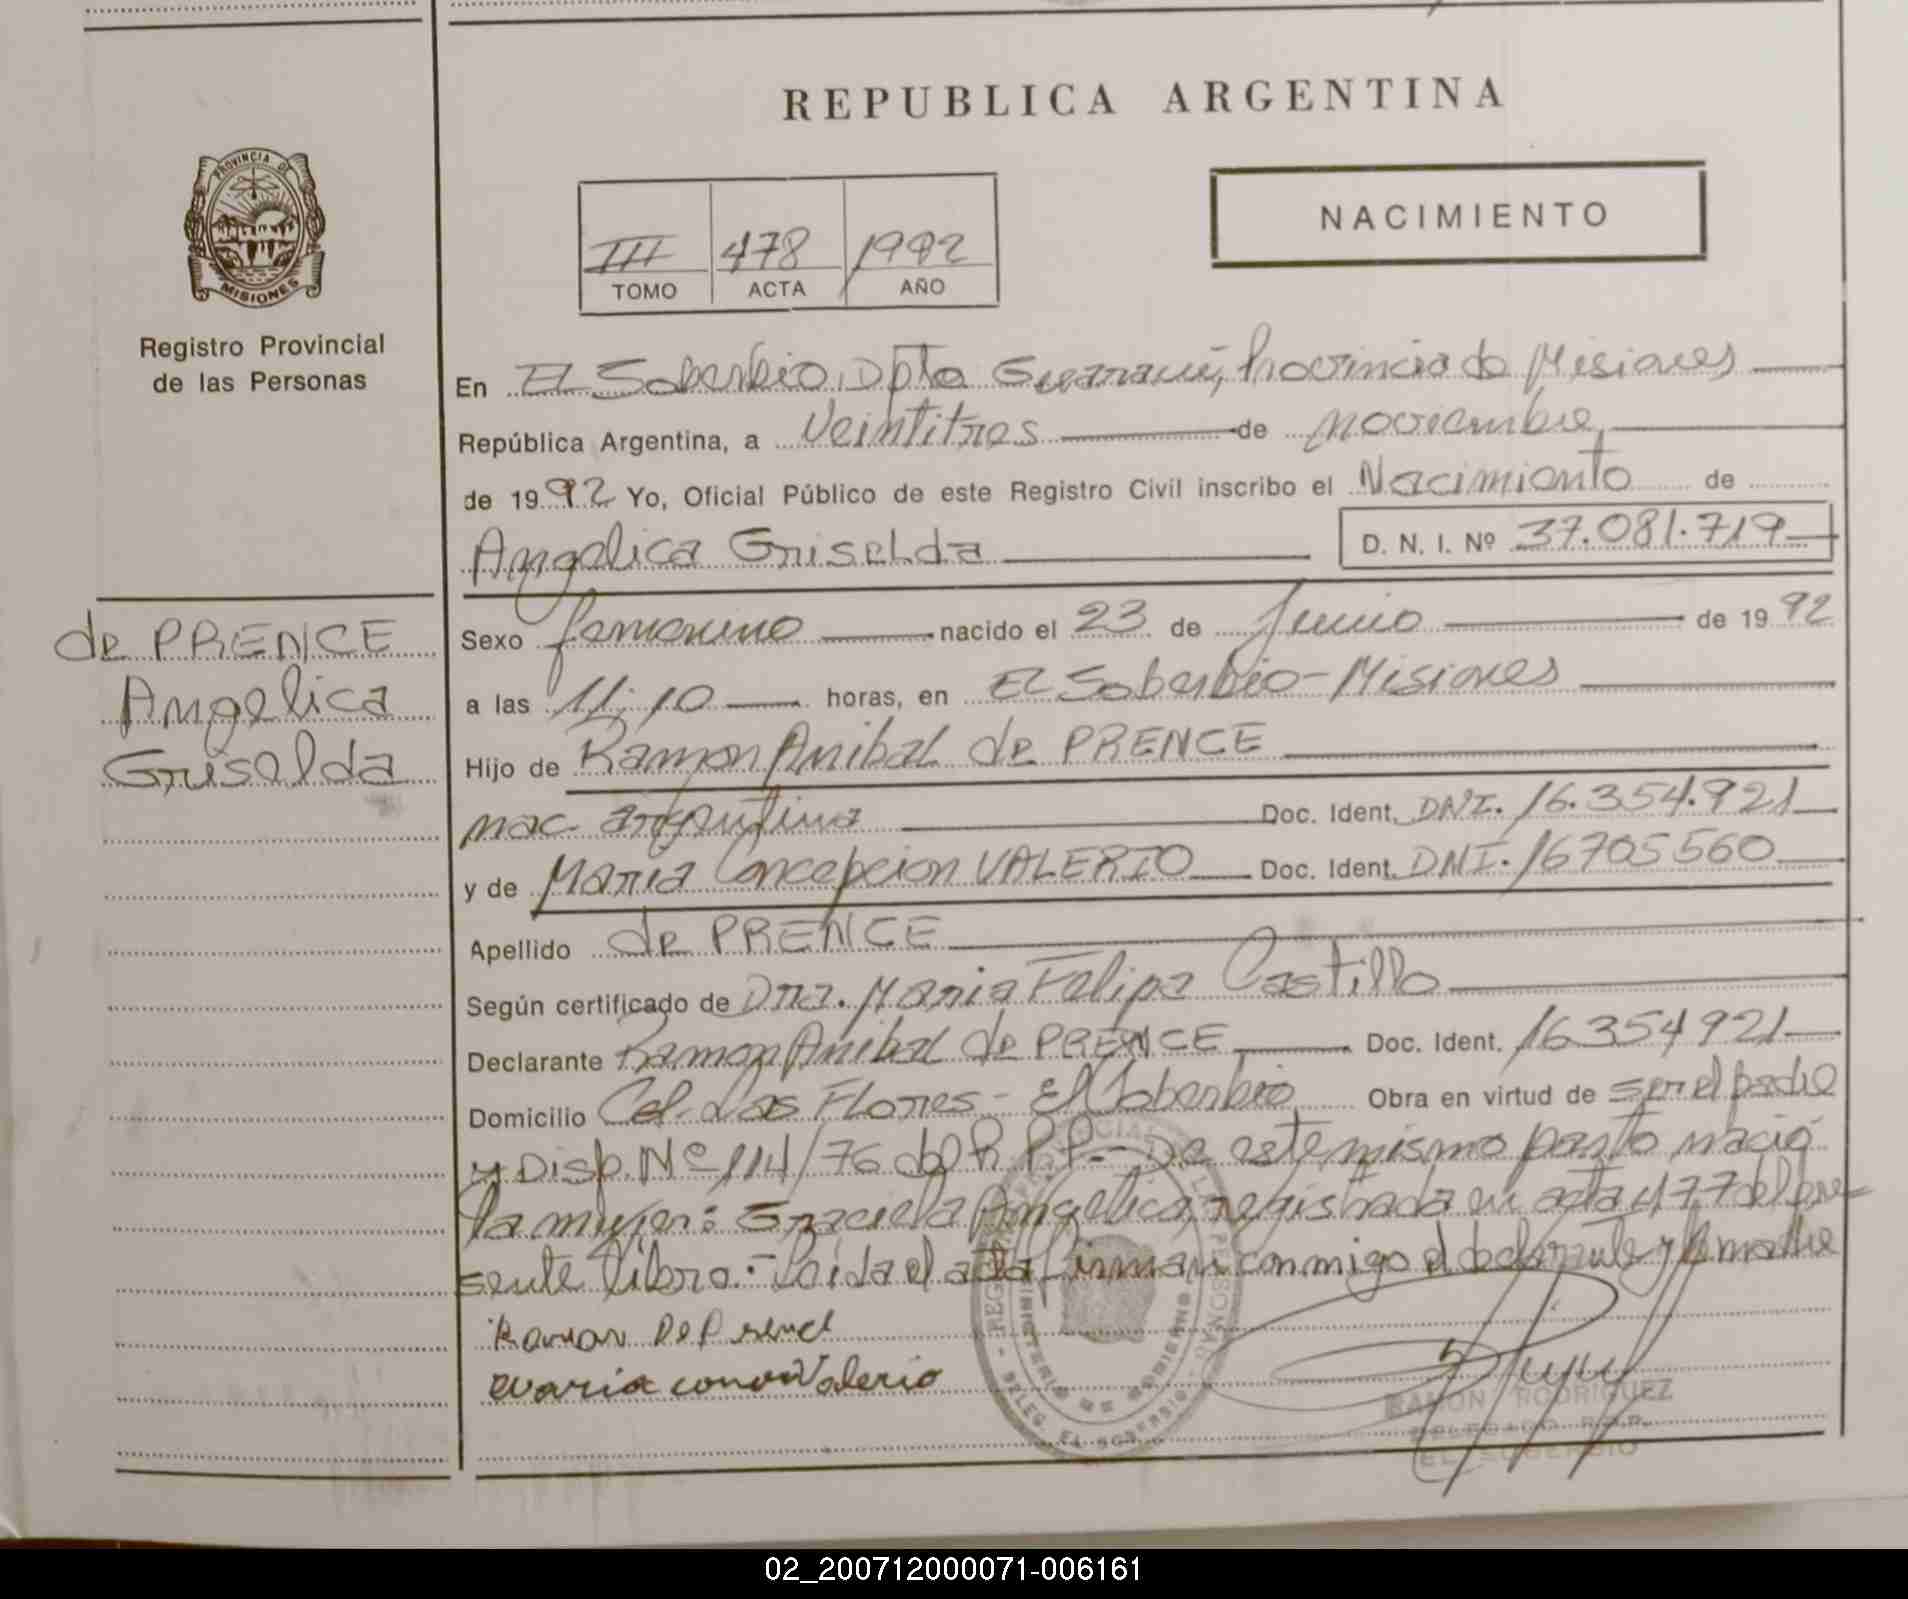 REPUBLICA ARGENTINA
PROVINCIA DE
MISIONES
Registro Provincial
de las Personas
III 478 1992
TOMO ACTA AÑO
NACIMIENTO
En El Soberbio, Dpto Guaraní, Provincia de Misiones
República Argentina, a Veintitres de noviembre
de 1992 Yo, Oficial Público de este Registro Civil inscribo el Nacimiento de
Angelica Griselda D. N. I. Nº 37.081.719
de PRENCE
Angelica
Griselda
Sexo femenino nacido el 23 de Junio de 1992
a las 11:10 horas, en El Soberbio - Misiones
Hijo de Ramon Anibal de PRENCE
nac. argentina Doc. Ident. DNI. 16.354.921
y de Maria Concepcion VALERIO Doc. Ident. DNI. 16705560
Apellido de PRENCE
Según certificado de Dra. Maria Felipa Castillo
Declarante Ramon Anibal de PRENCE Doc. Ident. 16354921
Domicilio Col. Las Flores - El Soberbio Obra en virtud de ser el padre
y Disp. Nº 114/76 del R.P.P.- De este mismo parto nació
la mujer: Graciela Angelica, registrada en acta 477 del pre-
sente libro.- Leida el acta firman conmigo el declarante y la madre
Ramon De Prence
Maria Valerio
RAMON RODRIGUEZ
DELEGADO R.P.P.
EL SOBERBIO
02_200712000071-006161